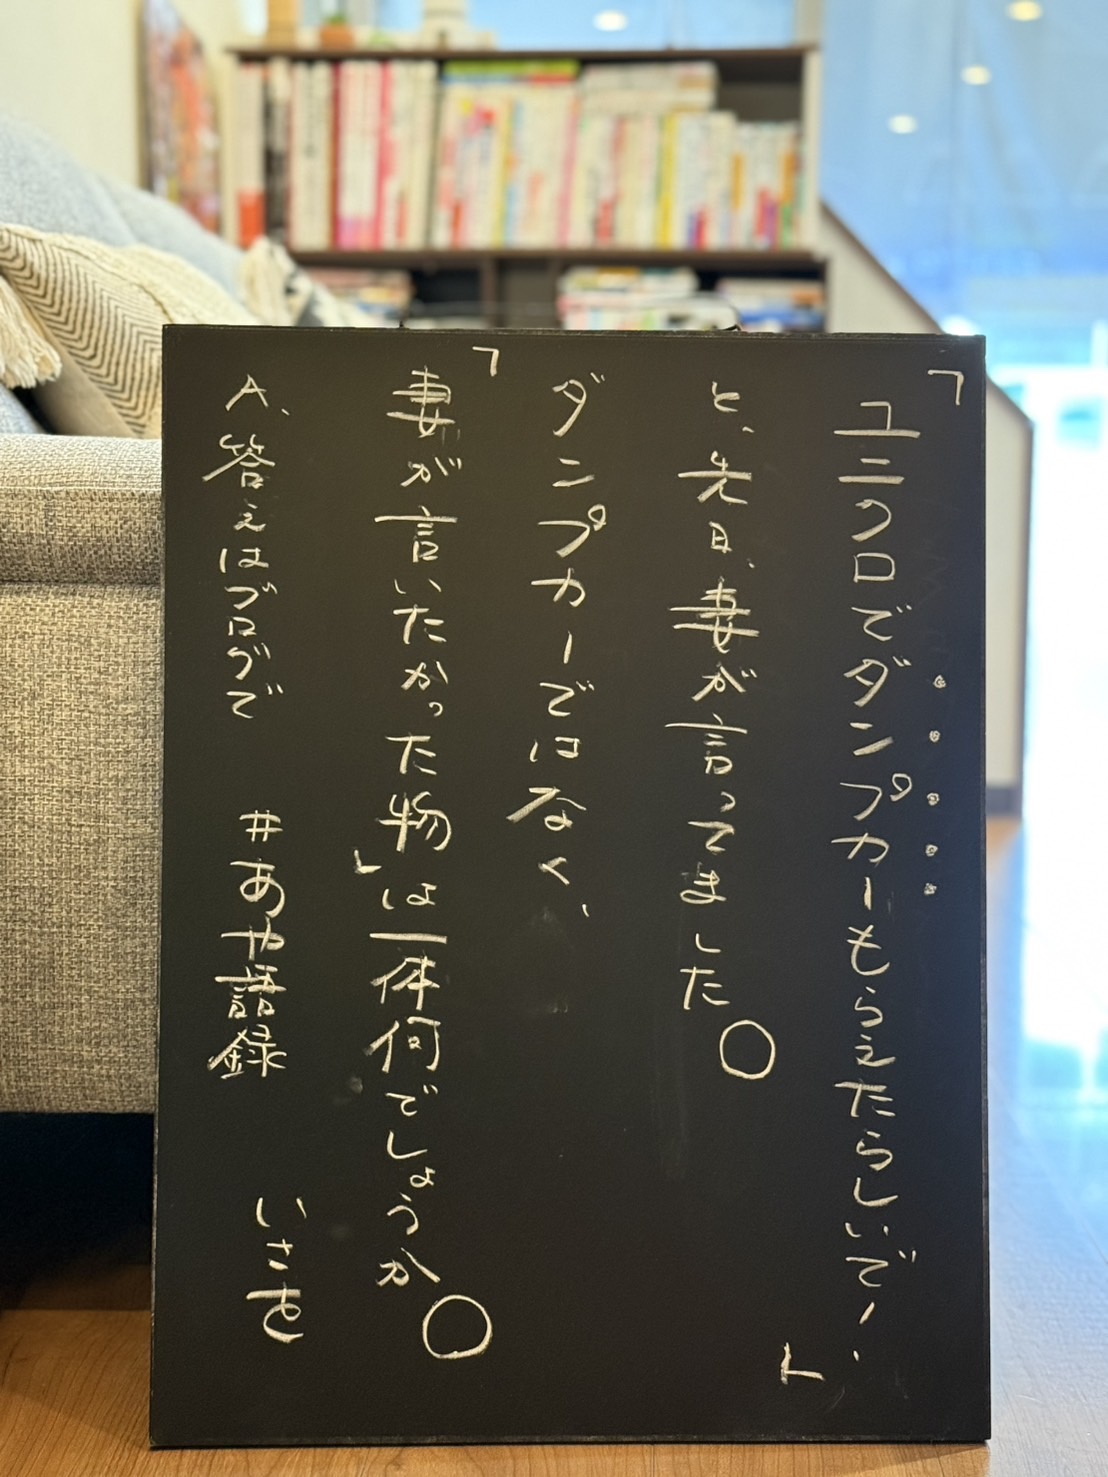 「ユニクロでダンプカーもらえたらしいで！」
と、先日、妻が言ってました。
ダンプカーではなく、
「妻が言いたかった物」は一体何でしょうか。
A、答えはブログで　#あや語録　いさを